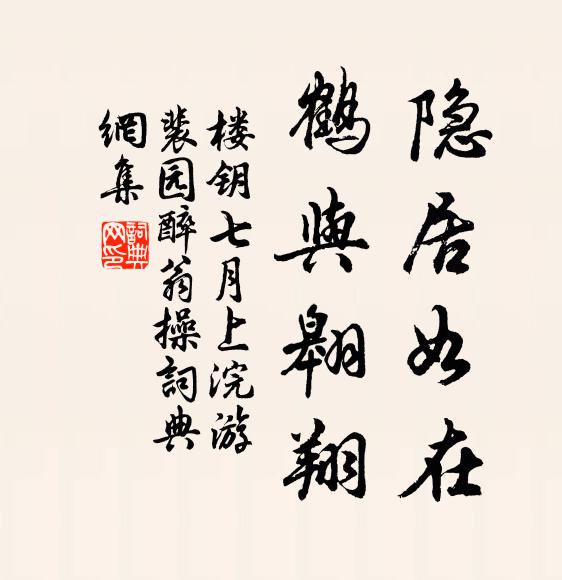 隐居如在
鹤与翱翔
楼钥七月上浣游
裴园醉翁操詞典
網集
詞典網印